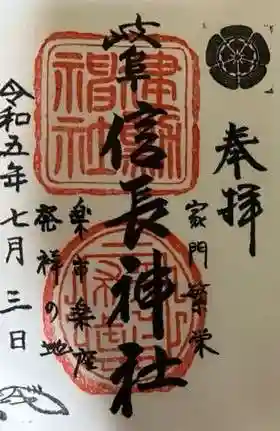 奉拝
家門繁栄
岐阜信長神社
建勲
神社
楽市楽座
発祥の地
令和五年七月三日